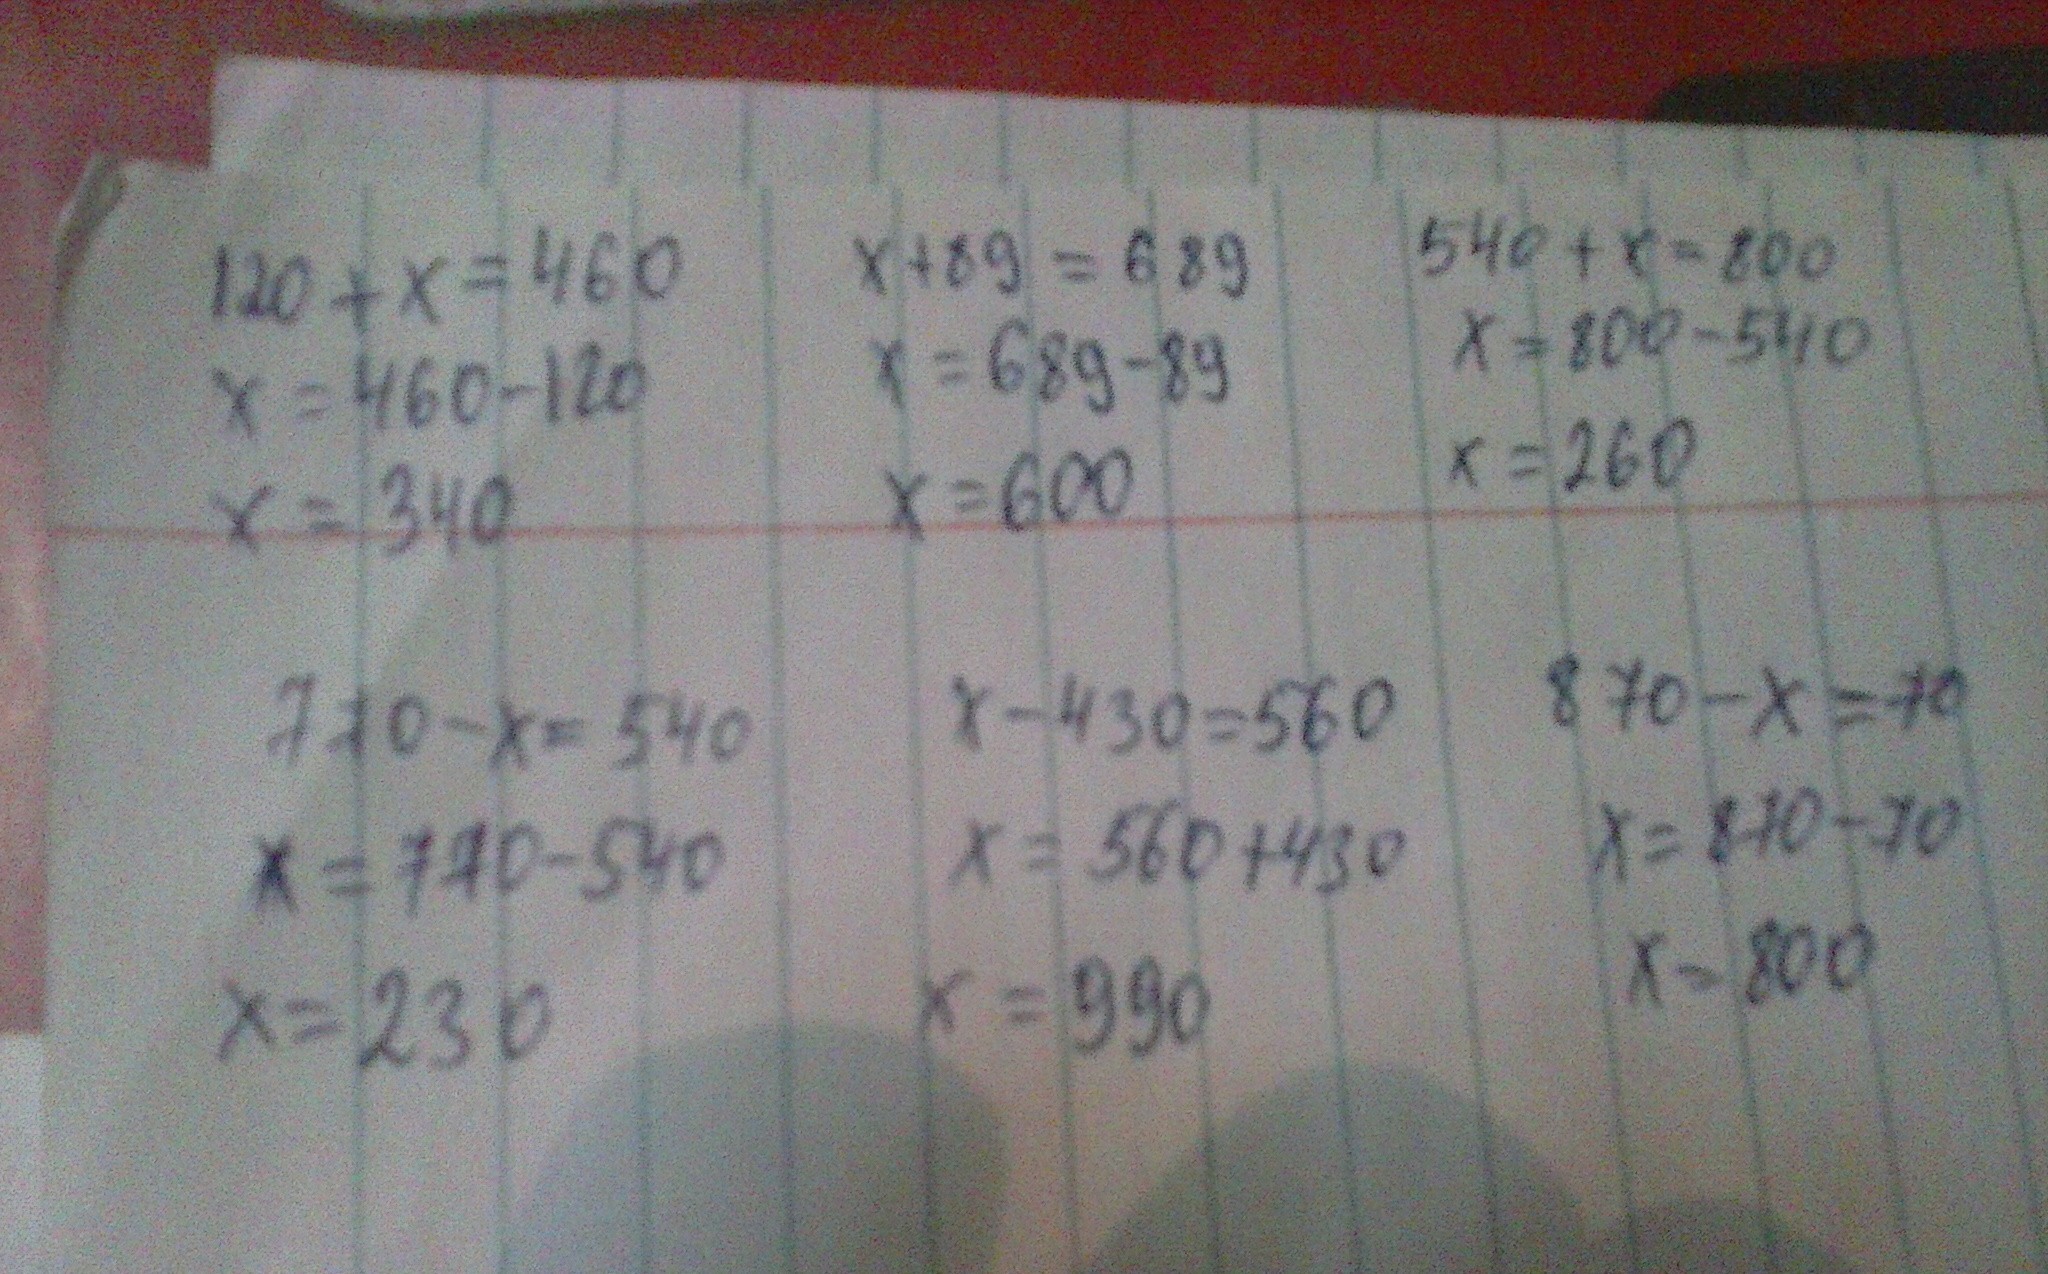 120+x=460
x=460-120
x=340
x+89=689
x=689-89
x=600
540+x=800
x=800-540
x=260
770-x=540
x=770-540
x=230
x-430=560
x=560+430
x=990
870-x=70
x=870-70
x=800